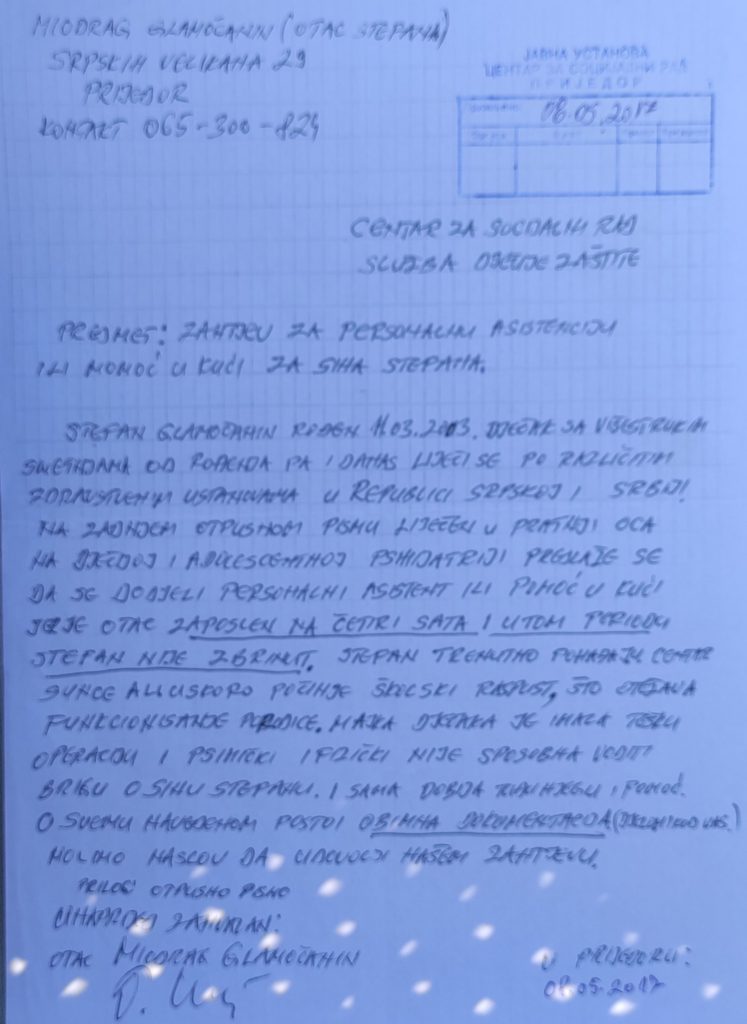 MIODRAG GLAMOČANIN (OTAC STEPANA)
SRPSKIH VELIKANA 29
PRIJEDOR
KONTAKT 065-300-824
ЈАВНА УСТАНОВА
ЦЕНТАР ЗА СОЦИЈАЛНИ РАД
ПРИЈЕДОР
08.05.2017
CENTAR ZA SOCIJALNI RAD
SLUŽBA DJEČIJE ZAŠTITE
PREDMET: ZAHTJEV ZA PERSONALNU ASISTENCIJU
ILI POMOĆ U KUĆI ZA SINA STEPANA.
STEFAN GLAMOČANIN ROĐEN 11.03.2003. DJEČAK SA VIŠESTRUKIM
SMETNJAMA OD ROĐENJA PA I DANAS LIJEČI SE PO RAZLIČITIM
ZDRAVSTVENIM USTANOVAMA U REPUBLICI SRPSKOJ I SRBIJI.
NA ZADNJEM OTPUSNOM PISMU LIJEČEN U PRATNJI OCA
NA DJEČIJOJ I ADOLESCENTNOJ PSIHIJATRIJI PREDLAŽE SE
DA SE DODJELI PERSONALNI ASISTENT ILI POMOĆ U KUĆI
JER JE OTAC ZAPOSLEN NA ČETIRI SATA I U TOM PERIODU
STEFAN NIJE ZBRINUT. STEFAN TRENUTNO POHAĐA CENTAR
SUNCE ALI USKORO POČINJE ŠKOLSKI RASPUST, ŠTO OTEŽAVA
FUNKCIONISANJE PORODICE. MAJKA DJEČAKA JE IMALA TEŠKU
OPERACIJU I PSIHIČKI I FIZIČKI NIJE SPOSOBNA VODITI
BRIGU O SINU STEPANU. I SAMA DOBIJA TUĐU NJEGU I POMOĆ.
O SVEMU NAVEDENOM POSTOJI OBIMNA DOKUMENTACIJA (I KOD VAS.)
MOLIMO NASLOV DA UDOVOLJI NAŠEM ZAHTJEVU.
PRILOG OTPUSNO PISMO
UNAPRIJED ZAHVALAN:
OTAC MIODRAG GLAMOČANIN
U PRIJEDORU:
08.05.2017